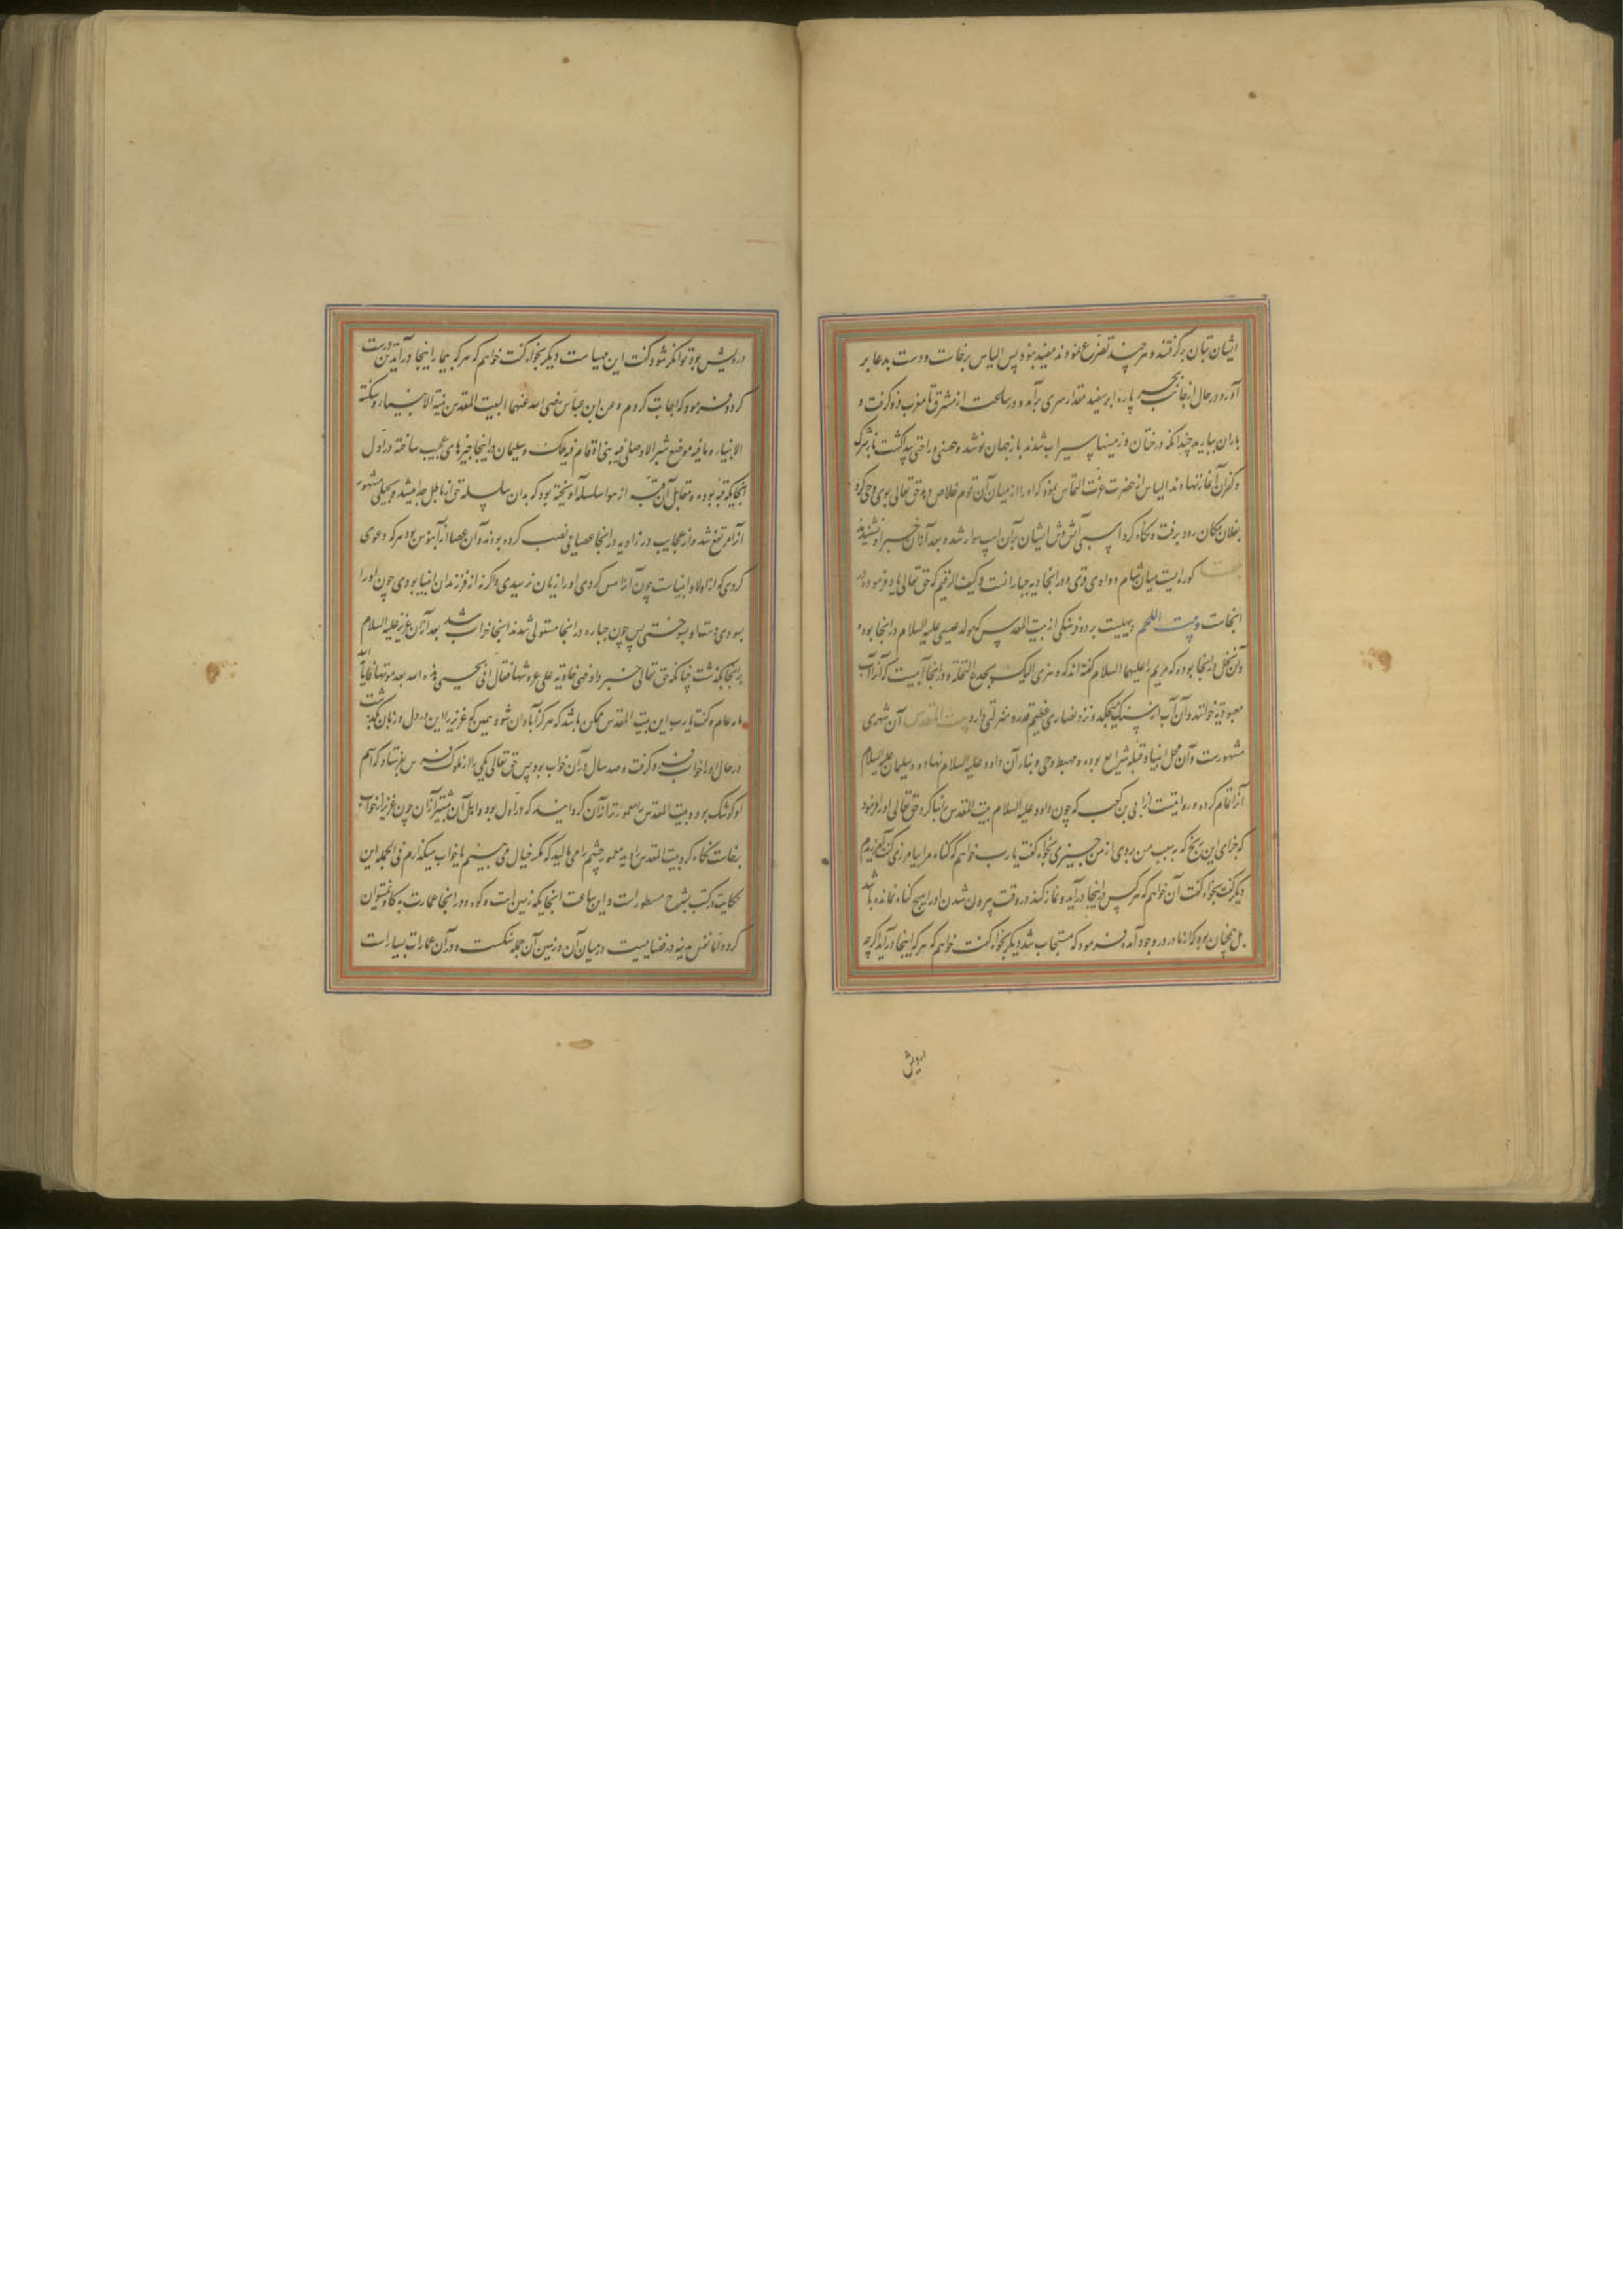 ایشان بتان برگرفتند و هر چند تضرع نمودند مفید نبود پس الیاس برخاست و دست بدعا بر
آورد در حال از جانب بحر پاره ابر سفید مقدار سری برآمد و در ساعت از مشرق تا مغرب فرو گرفت و
باران ببارید چندانکه درختان و زمینها سیراب شدند باز جهان نو شد و خصبی و راحتی پدید گشت باز شرک
و کفران آغاز نهادند الیاس از حضرت عزت التماس نمود که او را از میان آن قوم خلاص دهد حق تعالی بوی وحی کرد
بفلان مکان رود برفت و نگاه کرد اسبی آتش وش ایشان بر آن اسب سوار شد و بعد از آن خبر او نشنیدند
کوره‌ایست میان شام و وادی قری و در آنجا دیه جبارانست و کهف الرقیم که حق تعالی یاد فرموده در
آنجاست و بیت اللحم دیهیست بر دو فرسنگی از بیت المقدس که مولد عیسی علیه السلام در آنجا بوده
و آن نخل در آنجا بوده که مریم را علیها السلام گفته‌اند که و هزی الیک بجذع النخلة و در آنجا آبیست که آنرا آب
معبودیه خوانند و آن آب از سنگ میچکد و نزد نصاری عظیم قدر و منزلتی دارد بیت المقدس آن شهری
مشهورست و آن محل انبیا و قبله شرایع بوده و مهبط وحی و بناء آن داود علیه السلام نهاده و سلیمان علیه السلام
آنرا تمام کرده و روایتست از ابی بن کعب که چون داود علیه السلام بیت المقدس را بنا کرد حق تعالی او را فرمود
که جزای این رنج که بسبب من بردی از من چیزی بخواه گفت یا رب خواهم که گناه مرا بیامرزی گفت آمرزیدم
دیگر گفت بخواه گفت آن خواهم که هر کس در اینجا درآید و نماز کند در وقت بیرون شدن او را هیچ گناه نمانده باشد
بل همچنان بود که از مادر در وجود آمده فرمود که مستجاب شد دیگر بخواه گفت خواهم که هر که اینجا درآید اگر چه
درویش
درویش بود توانگر شود گفت این مهیاست دیگر بخواه گفت خواهم که هر که بیمار اینجا درآید تن درست
کردد فرمود که اجابت کردم و عن ابن عباس رضی الله عنهما البیت المقدس بنته الانبیاء و سکنته
الانبیاء و ما فیه موضع شبر الا و صلی فیه نبی او قام فیه ملک و سلیمان در اینجا چیزهای عجیب ساخته در اول
آنجا یکی قبه بوده و مقابل آن قبه از هوا سلسله آویخته بود که بدان سلسله حق از باطل جدا میشد و بحیلتی مشهور
آن مرتفع شد و از عجایب در زاویه در آنجا عصایی نصب کرده بودند و آن عصا از آبنوس بود هر که دعوی
کردی که از اولاد انبیاست چون آنرا مس کردی او را زیان نرسیدی و اگر نه از فرزندان انبیا بودی چون او را
بسودی دست او بسوختی پس چون جبابره در آنجا مستولی شدند آنجا خراب شد بعد از آن عزیر علیه السلام
بر آنجا بگذشت چنانکه حق تعالی خبر داد و هی خاویة علی عروشها فقال انی یحیی هذه الله بعد موتها فاماته الله
مایه عام و گفت یا رب این بیت المقدس ممکن باشد که هرگز آبادان شود همین که عزیر را این در دل و زبان بگذشت
در حال او را خواب فرو گرفت و صد سال در آن خواب بود پس حق تعالی یکی را از ملوک فرس بفرستاد که اسم
او کوشک بود و بیت المقدس را معمورتر از آن گردانیدند که در اول بود و اهل آن بیشتر از آن چون عزیر از خواب
برخاست نگاه کرد بیت المقدس را دید معمور چشم را می‌مالید که مگر خیال می بینم یا خواب میگذارم فی الجمله این
حکایت در کتب بشرح مسطورست و این ساعت آنجا یکه زمین است و کوه و در آنجا عمارت به کلفت توان
کرد و اما نفس مدینه در فضاییست در میان آن و زمین آن جمله سنگست و در آن عمارات بسیارست